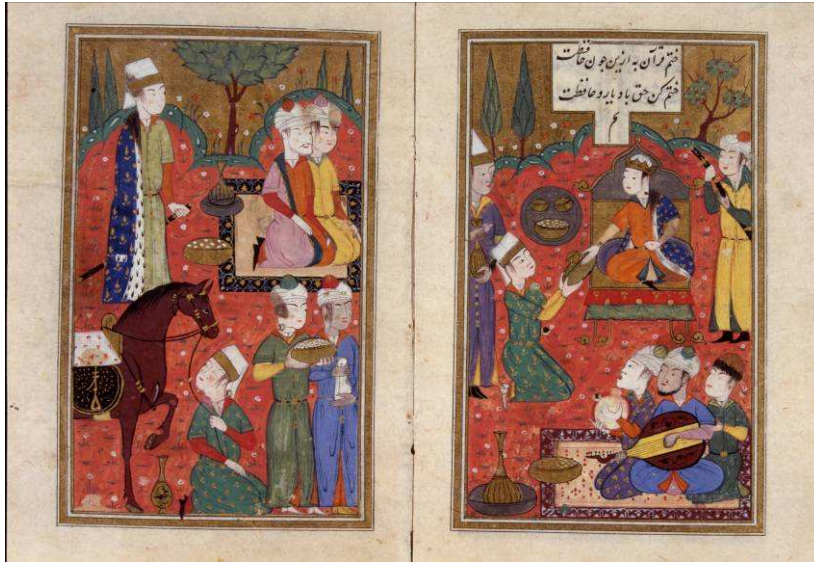 ختم قرآن به ازین چون حافظت
ختم کن حق باد یار و حافظت